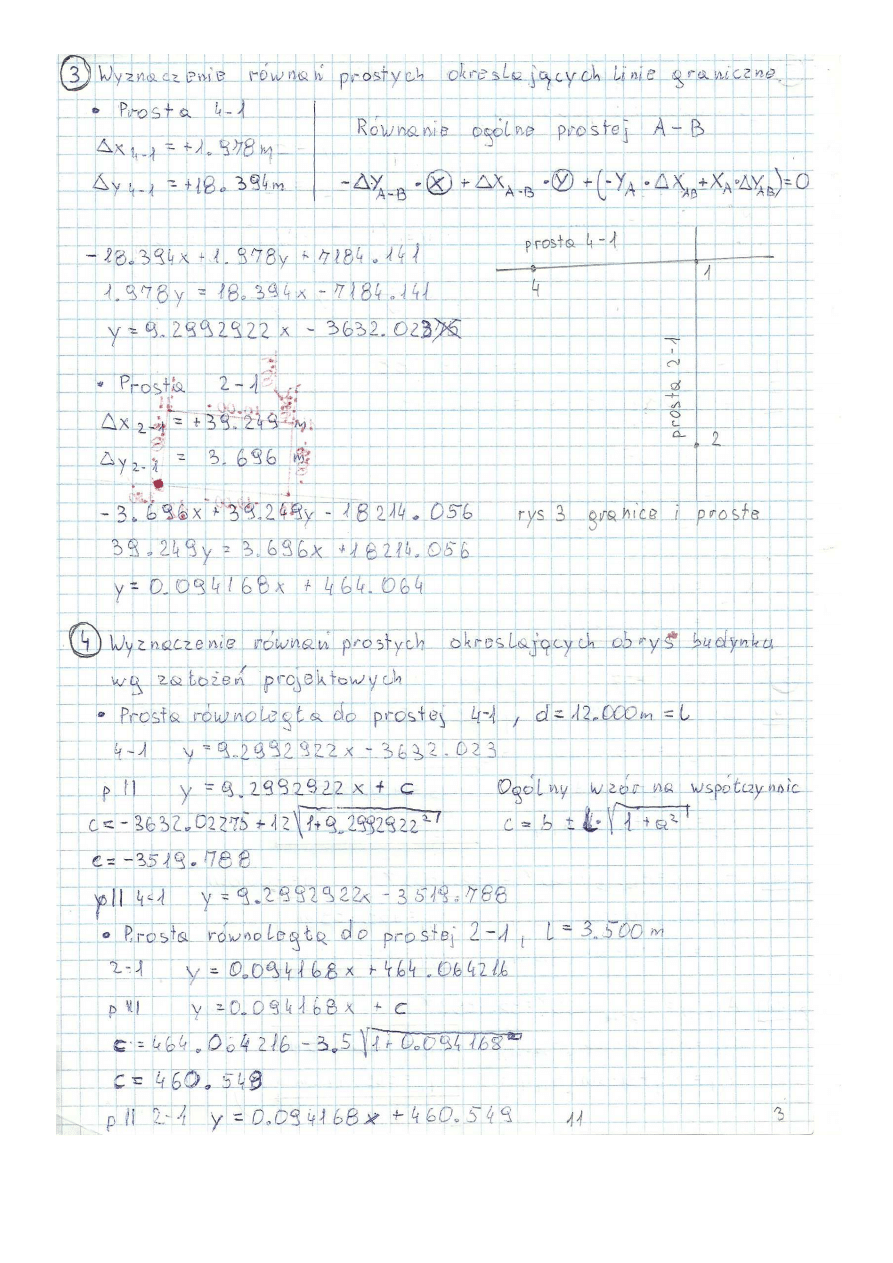 3 Wyznaczenie równań prostych określających linie graniczne
• Prosta 4-1
Δx4-1 = +1.978m
Δy4-1 = +18.394m
Równanie ogólne prostej A-B
-ΔYA-B · X + ΔXA-B · Y + (-YA · ΔXAB + XA · ΔYAB) = 0
-18.394x + 1.978y + 7184.141
1.978y = 18.394x - 7184.141
y = 9.2992922x - 3632.023
prosta 4-1
4
1
prosta 2-1
2
• Prosta 2-1
Δx2-1 = +39.249 m
Δy2-1 = 3.696 m
-3.696x + 39.249y - 18214.056
39.249y = 3.696x + 18214.056
y = 0.094168x + 464.064
rys 3 granice i proste
4 Wyznaczenie równań prostych określających obrys budynku
wg założeń projektowych
• Prosta równoległa do prostej 4-1, d = 12.000m = l
4-1 y = 9.2992922x - 3632.023
p II y = 9.2992922x + c
Ogólny wzór na współczynnic
c = -3632.02275 + 12√1+9.2992922²
c = b ± l·√1+a²
c = -3519.788
p II 4-1 y = 9.2992922x - 3519.788
• Prosta równoległa do prostej 2-1, l = 3.500m
2-1 y = 0.094168x + 464.064216
p II y = 0.094168x + c
c = 464.064216 - 3.5√1+0.094168²
c = 460.549
p II 2-1 y = 0.094168x + 460.549
11
3